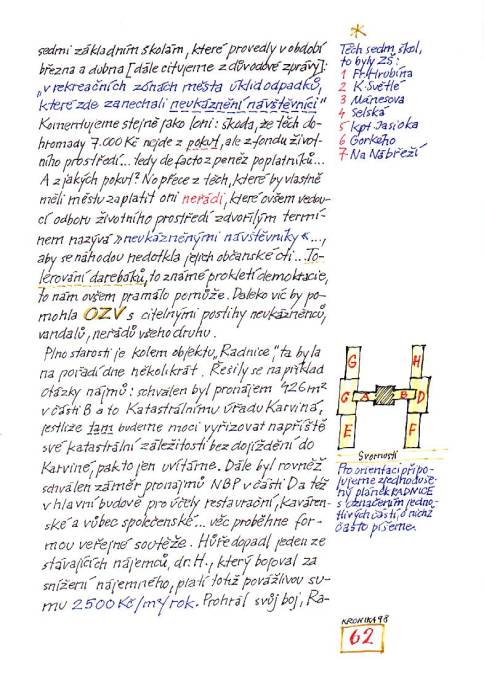 sedmi základním školám, které provedly v období
března a dubna [dále citujeme z důvodové zprávy]:
„v rekreačních zónách města úklid odpadků,
které zde zanechali neukáznění návštěvníci"
Komentujeme stejně jako loni: škoda, že těch do-
hromady 7.000 Kč nejde z pokut, ale z fondu život-
ního prostředí... tedy de facto z peněz poplatníků...
A z jakých pokut? No přece z těch, které by vlastně
měli městu zaplatit oni neřádi, které ovšem vedou-
cí odboru životního prostředí zdvořilým termí-
nem nazývá »neukázněnými návštěvníky«...,
aby se náhodou nedotkla jejich občanské cti... To-
lerování darebáků, to známé prokletí demokracie,
to nám ovšem pramálo pomůže. Daleko víc by po-
mohla OZV s citelnými postihy neukázněnců,
vandalů, neřádů všeho druhu.
Plno starostí je kolem objektu „Radnice", ta byla
na pořadí dne několikrát. Řešily se na příklad
otázky nájmů: schválen byl pronájem 426 m²
v části B a to Katastrálnímu úřadu Karviná,
jestliže tam budeme moci vyřizovat napříště
své katastrální záležitosti bez dojíždění do
Karviné, pak to jen uvítáme. Dále byl rovněž
schválen záměr pronájmů NBP v části D a též
v hlavní budově pro účely restaurační, kaváren-
ské a vůbec společenské... věc proběhne for-
mou veřejné soutěže. Hůře dopadl jeden ze
stávajících nájemců, dr. H., který bojoval za
snížení nájemného, platí totiž považlivou su-
mu 2500 Kč/m²/rok. Prohrál svůj boj, Ra-
*
Těch sedm škol,
to byly ZŠ:
1 Fr. Hrubína
2 K. Světlé
3 Mánesova
4 Selská
5 kpt. Jasioka
6 Gorkého
7 Na Nábřeží
G H
C A B D
E F
Svornosti
Pro orientaci připo-
jujeme zjednoduše-
ný plánek RADNICE
s označením jedno-
tlivých částí, o nichž
často píšeme.
KRONIKA 98
62